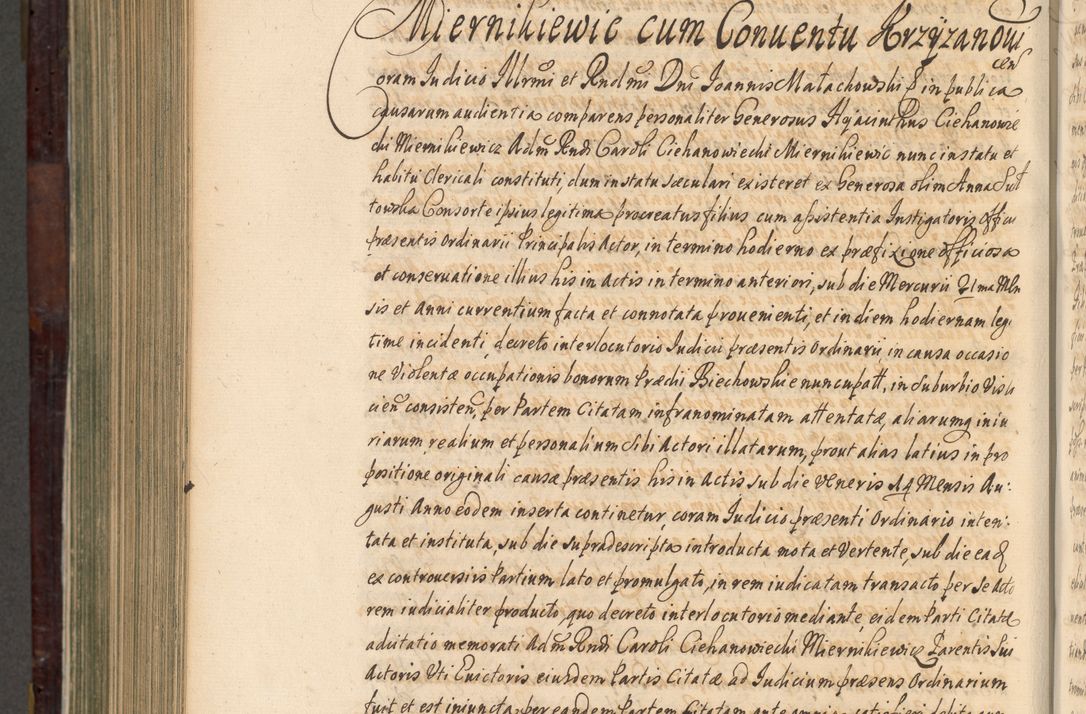 Miernikiewic cum Conuentu Krzyzanow
cen
Coram Iudicio Illrmi et Rndmi Dni Ioannis Małachowski in publica
causarum audientia comparens personaliter Generosus Hyacinthus Ciehanowie
cki Miernikiewicz Adm Rndi Caroli Ciehanowiecki Miernikiewic nunc in statu et
habitu Clericali constituti, dum in statu sæculari existeret ex Generosa olim Anna Suł
towska Consorte ipsius legitima procreatus filius cum assistentia Instigatoris Officii
præsentis Ordinarii Principalis Actor, in termino hodierno ex præfixione officiosa
et conseruatione illius his in Actis in termino anteriori, sub die Mercurii 21ma Men
sis et Anni currentium facta et connotata prouenienti, et in diem hodiernam legi
time incidenti, decreto interlocutorio Iudicii præsentis Ordinarii, in causa occasio
ne Violentæ occupationis bonorum Præchi Biechowskie nuncupatt, in suburbio Visli
cien consisten, per Partem Citatam, infranominatam attentatæ, aliarumq iniu
riarum realium et personalium Sibi Actori illatarum, prout alias latius in pro
positione originali causæ præsentis his in Actis sub die Veneris 14 Mensis Au:
gusti Anno eodem inserta continetur, coram Iudicio præsenti Ordinario inten:
tata et instituta, sub die supradescripta introducta mota et Vertente, sub die eadq
ex controuersiis Partium lato et promulgato, in rem iudicatam transacto, per se Acto
rem iudicialiter producto, quo decreto interlocutorio mediante, eidem Parti Citatæ
adcitatio memorati Adm Rndi Caroli Ciehanowiecki Miernikiewicz Parentis Sui
Actoris Uti Euictoris eiusdem Partis Citatæ ad Iudicium præsens Ordinarium
fuit et est iniuncta, per eandem Partem Citatam ante omnia